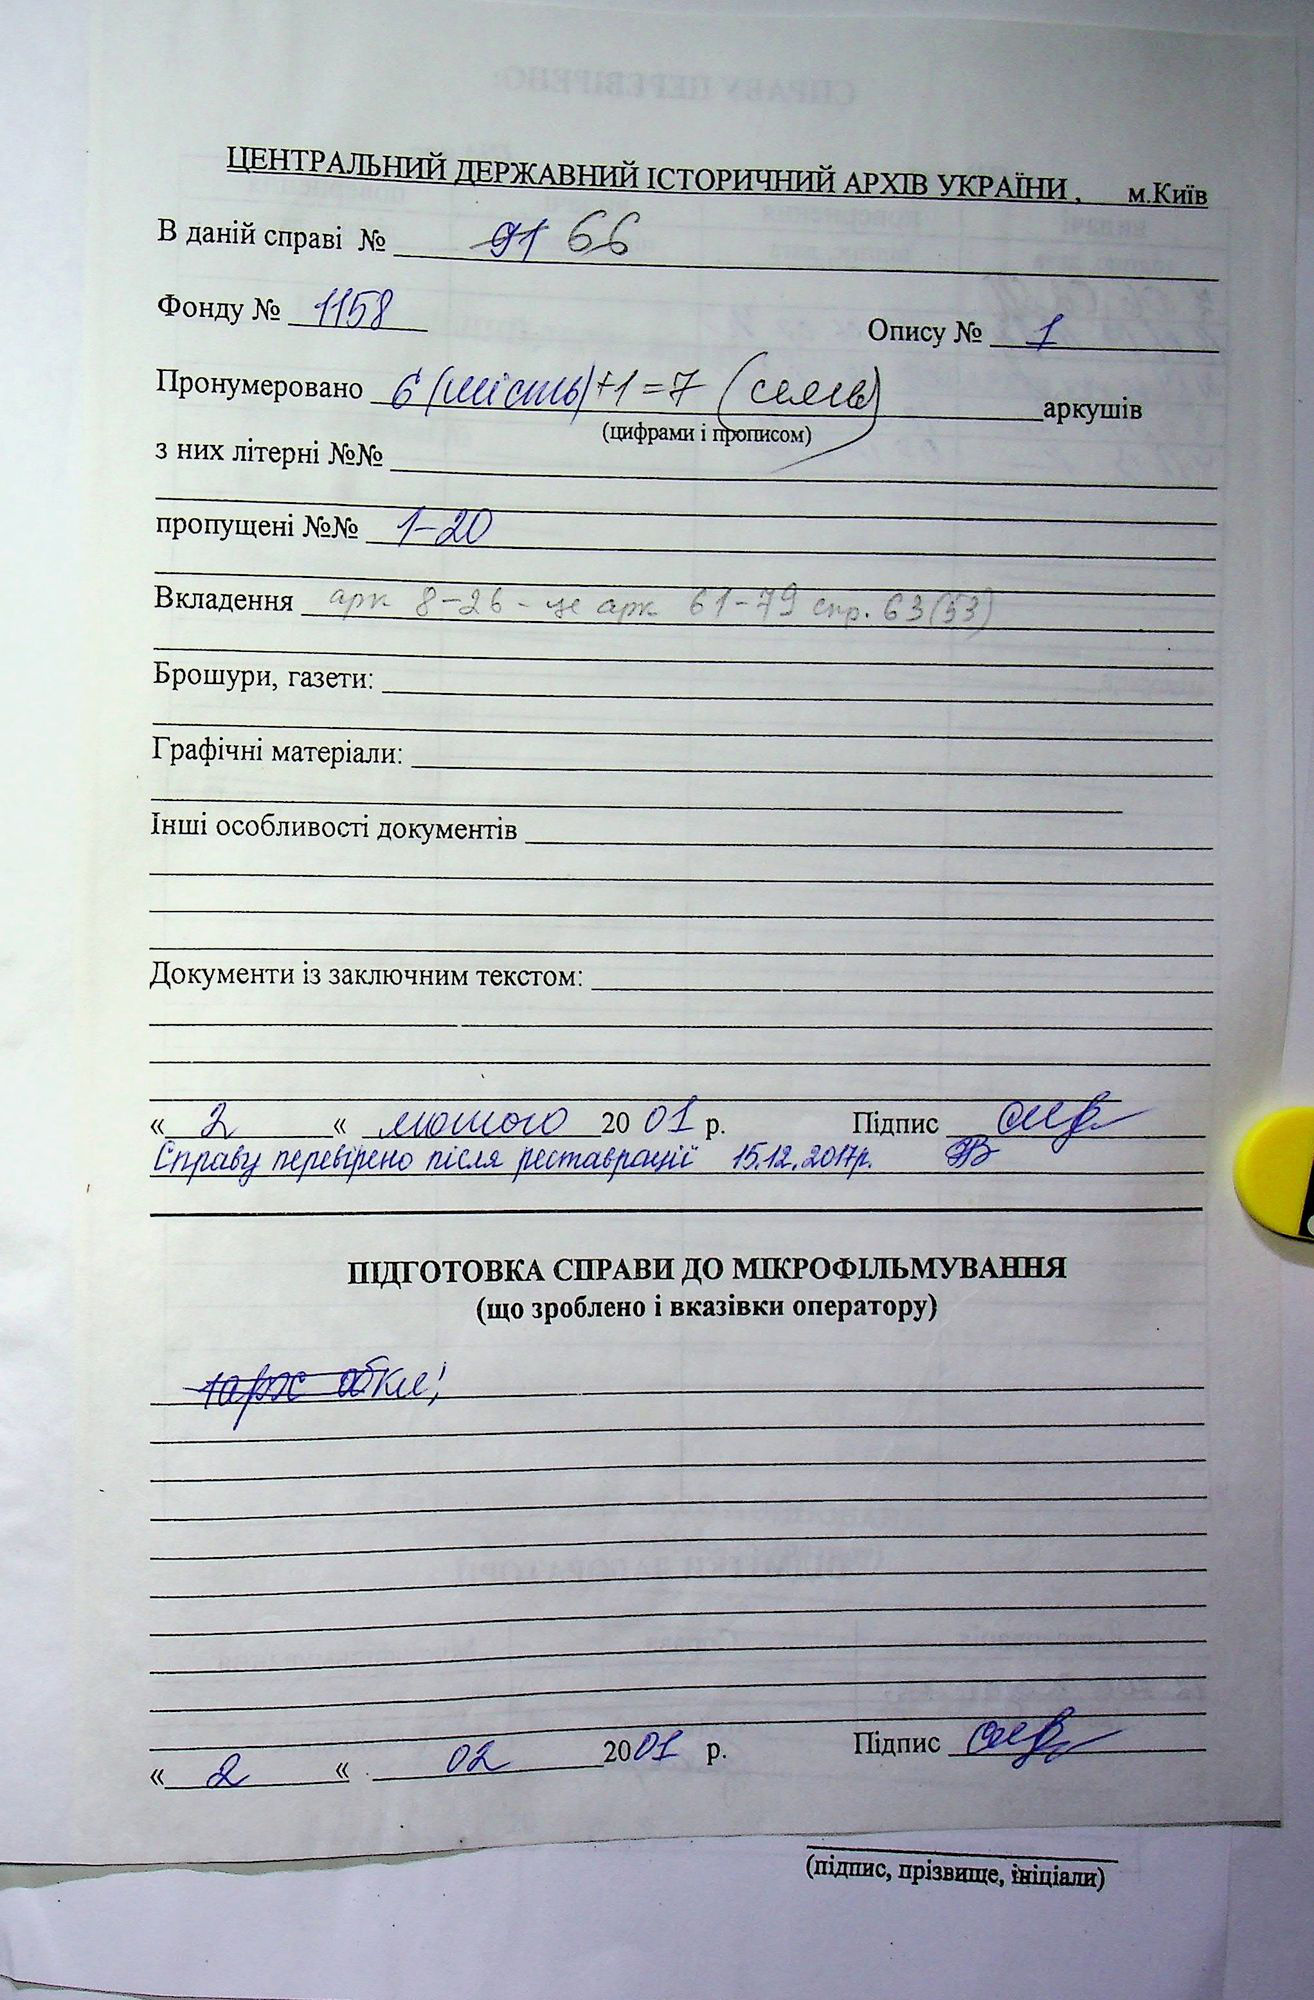 ЦЕНТРАЛЬНИЙ ДЕРЖАВНИЙ ІСТОРИЧНИЙ АРХІВ УКРАЇНИ, м.Київ
В даній справі № 91 66
Фонду № 1158 Опису № 1
Пронумеровано 6 (шість)+1=7 (семь) аркушів
(цифрами і прописом)
з них літерні №№
пропущені №№ 1-20
Вкладення арк 8-26 - це арк 61-79 спр. 63(53)
Брошури, газети:
Графічні матеріали:
Інші особливості документів
Документи із заключним текстом:
« 2 « лютого 2001 р. Підпис
Справу перевірено після реставрації 15.12.2017р.
ПІДГОТОВКА СПРАВИ ДО МІКРОФІЛЬМУВАННЯ
(що зроблено і вказівки оператору)
« 2 « 02 2001 р. Підпис
(підпис, прізвище, ініціали)